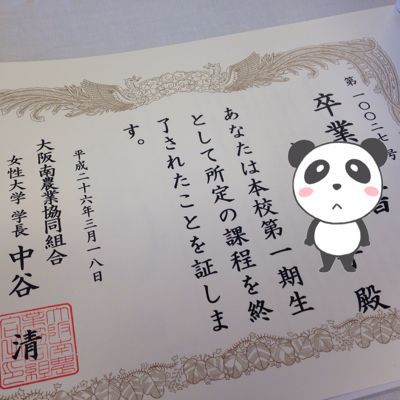 第一〇〇二七号
卒業
殿
あなたは本校第一期生
として所定の課程を終
了されたことを証しま
す。
平成二十六年三月一八日
大阪南農業協同組合
女性大学 学長 中谷 清